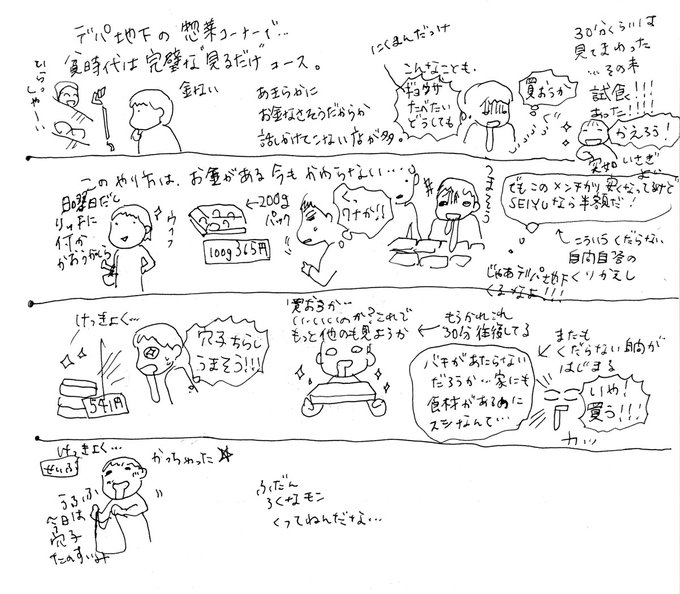 デパ地下の惣菜コーナーで…
貧時代は完璧な"見るだけ"コース。
いらっ
しゃーい
金ない
あきらかに
お金なさそうだからか
話しかけてこない店が多。
にくまんだっけ
こんなことも。
ギョウザ
たべたい
どうしても
買おうか
30分くらいは
見てまわった
…その末
試食!!!
あった!!!
かえろう!
実は いさぎ
よい
このやり方は、お金がある今もかわらない…
日曜日だし
リッチに
何か
かおうかしら
ウフフ
←200g
パック
100g 365円
くっ
ワナか!!
うまそう
でもこのメンチカツ安くなってるけど
SEIYUなら半額だ!
こういうくだらない
自問自答の
くりかえし
じゃあデパ地下
くるなよ!!!
けっきょく…
541円
穴子ちらし
うまそう!!!
買おうか…
いいいいのか?これで
もっと他のも見ようか
← もうかれこれ
30分往復してる
またも
くだらない自問が
はじまる
バチがあたらない
だろうか…家にも
食材があるのに
スシなんて…
いや!
買う!!!
カッ
けっきょく…
かっちゃった☆
うふふ
今日は
穴子
たのすぃみ
ふだん
ろくなモン
くってねんだな…